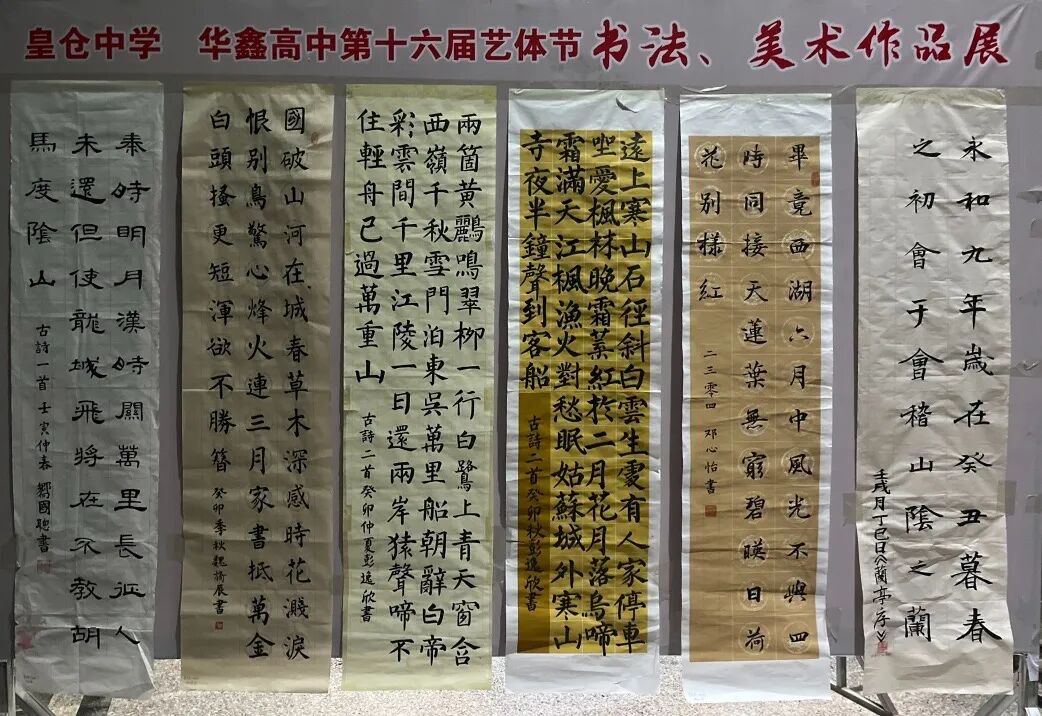 皇仓中学 华鑫高中第十六届艺体节书法、美术作品展
秦時明月漢時關萬里長征人
未還但使龍城飛將在不教胡
馬度陰山
古詩一首 壬寅仲春 鄒國聰書
國破山河在城春草木深感時花濺淚
恨别鳥驚心烽火連三月家書抵萬金
白頭搔更短渾欲不勝簪
癸卯季秋魏展書
兩箇黃鸝鳴翠柳一行白鷺上青天窗含
西嶺千秋雪門泊東吳萬里船朝辭白帝
彩雲間千里江陵一日還兩岸猿聲啼不
住輕舟已過萬重山
古詩二首癸卯仲夏彭逸欣書
遠上寒山石徑斜白雲生處有人家停車
坐愛楓林晚霜葉紅於二月花月落烏啼
霜滿天江楓漁火對愁眠姑蘇城外寒山
寺夜半鐘聲到客船
古詩二首癸卯秋彭逸欣書
畢竟西湖六月中風光不與四
時同接天蓮葉無窮碧暎日荷
花别樣紅
二三零四 邓心怡書
永和九年歲在癸丑暮春
之初會于會稽山陰之蘭
月丁巳日 蘭亭序